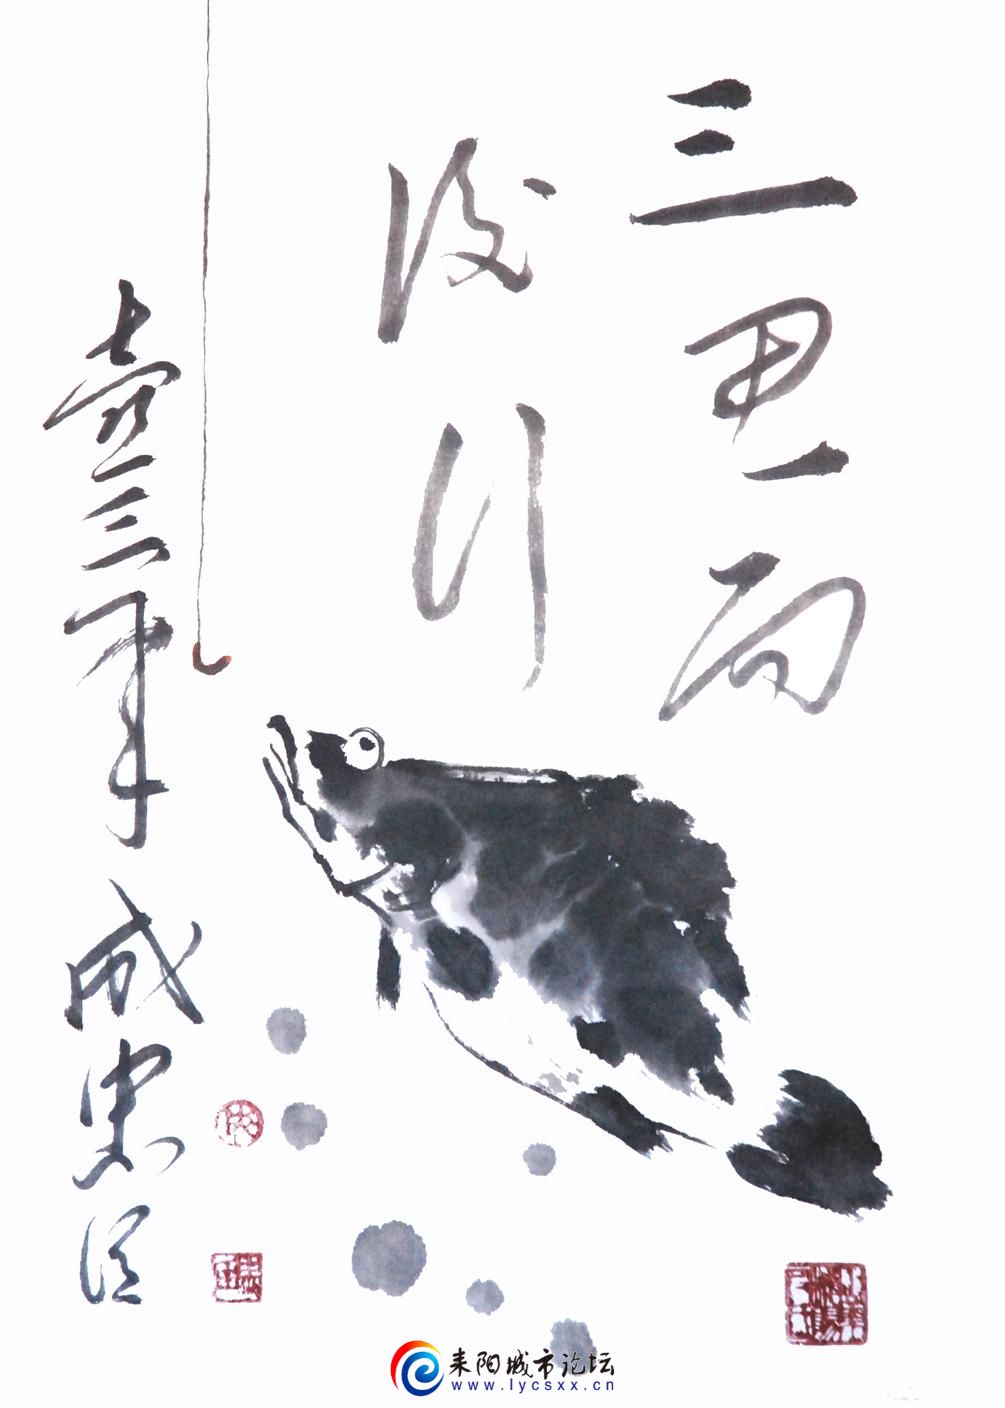 三思而
後行
壹三年 成忠
耒阳城市论坛
www.lycsxx.cn